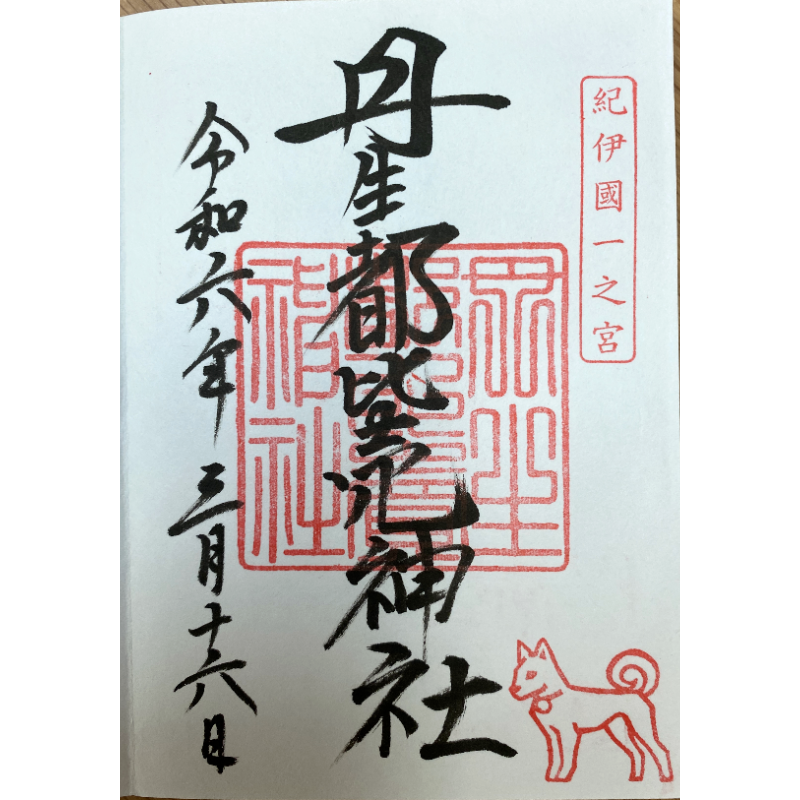 紀伊國一之宮
丹生都比賣神社
丹生
都比賣
神社
令和六年三月十六日